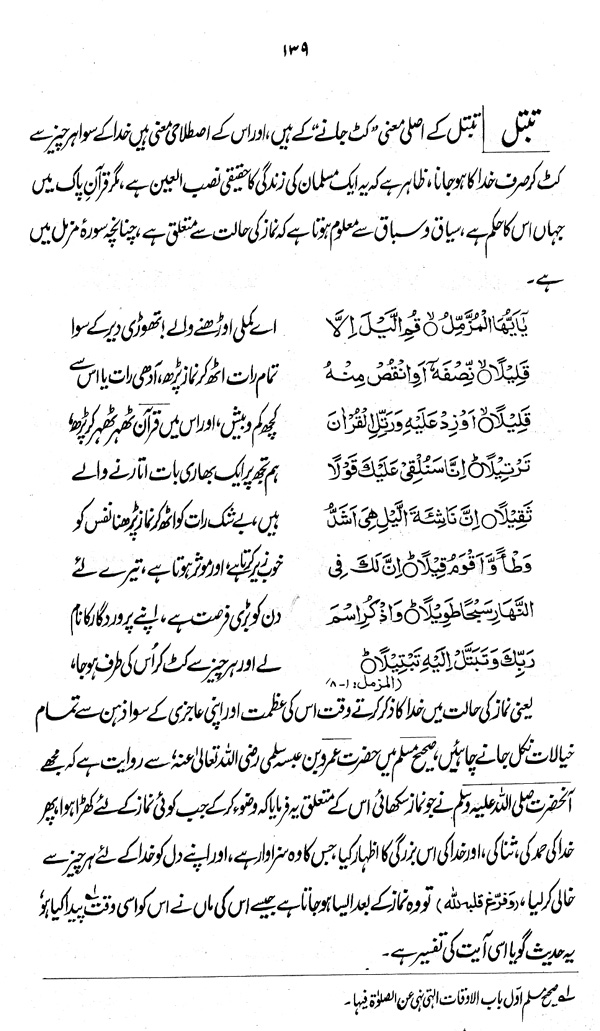 ۱۳۹
تبتل | تبتل کے اصلی معنی "کٹ جانے" کے ہیں، اور اس کے اصطلاحی معنی ہیں خدا کے سوا ہر چیز سے
کٹ کر صرف خدا کا ہو جانا، ظاہر ہے کہ یہ ایک مسلمان کی زندگی کا حقیقی نصب العین ہے، مگر قرآن پاک میں
جہاں اس کا حکم ہے، سیاق و سباق سے معلوم ہوتا ہے کہ نماز کی حالت سے متعلق ہے، چنانچہ سورۂ مزمل میں
ہے۔
يٰٓاَيُّهَا الْمُزَّمِّلُ ۙ قُمِ الَّيْلَ اِلَّا اے کملی اوڑھنے والے! تھوڑی دیر کے سوا
قَلِيْلًا ۙ نِّصْفَهٗٓ اَوِ انْقُصْ مِنْهُ تمام رات اٹھ کر نماز پڑھ، آدھی رات یا اس سے
قَلِيْلًا ۙ اَوْ زِدْ عَلَيْهِ وَرَتِّلِ الْقُرْاٰنَ کچھ کم و بیش، اور اس میں قرآن ٹھہر ٹھہر کر پڑھ،
تَرْتِيْلًا ؕ اِنَّا سَنُلْقِيْ عَلَيْكَ قَوْلًا ہم تجھ پر ایک بھاری بات اتارنے والے
ثَقِيْلًا ؕ اِنَّ نَاشِئَةَ الَّيْلِ هِيَ اَشَدُّ ہیں، بے شک رات کو اٹھ کر نماز پڑھنا نفس کو
وَطْاً وَّاَقْوَمُ قِيْلًا ؕ اِنَّ لَكَ فِى خوب زیر کرتا ہے، اور موثر ہوتا ہے، تیرے لئے
النَّهَارِ سَبْحًا طَوِيْلًا ؕ وَاذْكُرِ اسْمَ دن کو بڑی فرصت ہے، اپنے پروردگار کا نام
رَبِّكَ وَتَبَتَّلْ اِلَيْهِ تَبْتِيْلًا ؕ لے اور ہر چیز سے کٹ کر اُس کی طرف ہو جا،
(المزمل: ۱-۸)
یعنی نماز کی حالت میں خدا کا ذکر کرتے وقت اس کی عظمت اور اپنی عاجزی کے سوا ذہن سے تمام
خیالات نکل جانے چاہئیں، صحیح مسلم میں حضرت عمرو بن عبسہ سلمی رضی اللہ تعالیٰ عنہ، سے روایت ہے کہ مجھے
آنحضرت صلی اللہ علیہ وسلم نے جو نماز سکھائی اس کے متعلق یہ فرمایا کہ وضو کر کے جب کوئی نماز کے لئے کھڑا ہوا، پھر
خدا کی حمد کی، ثنا کی، اور خدا کی اس بزرگی کا اظہار کیا، جس کا وہ سزاوار ہے، اور اپنے دل کو خدا کے لئے ہر چیز سے
خالی کر لیا، (وَفَرَّغَ قلبہ للہ) تو وہ نماز کے بعد ایسا ہو جاتا ہے جیسے اس کی ماں نے اس کو اسی وقت پیدا کیا ہو،ؔ۱
یہ حدیث گویا اسی آیت کی تفسیر ہے۔
۱؎ صحیح مسلم اوّل باب الاوقات التی نہی عن الصلوٰۃ فیہا۔